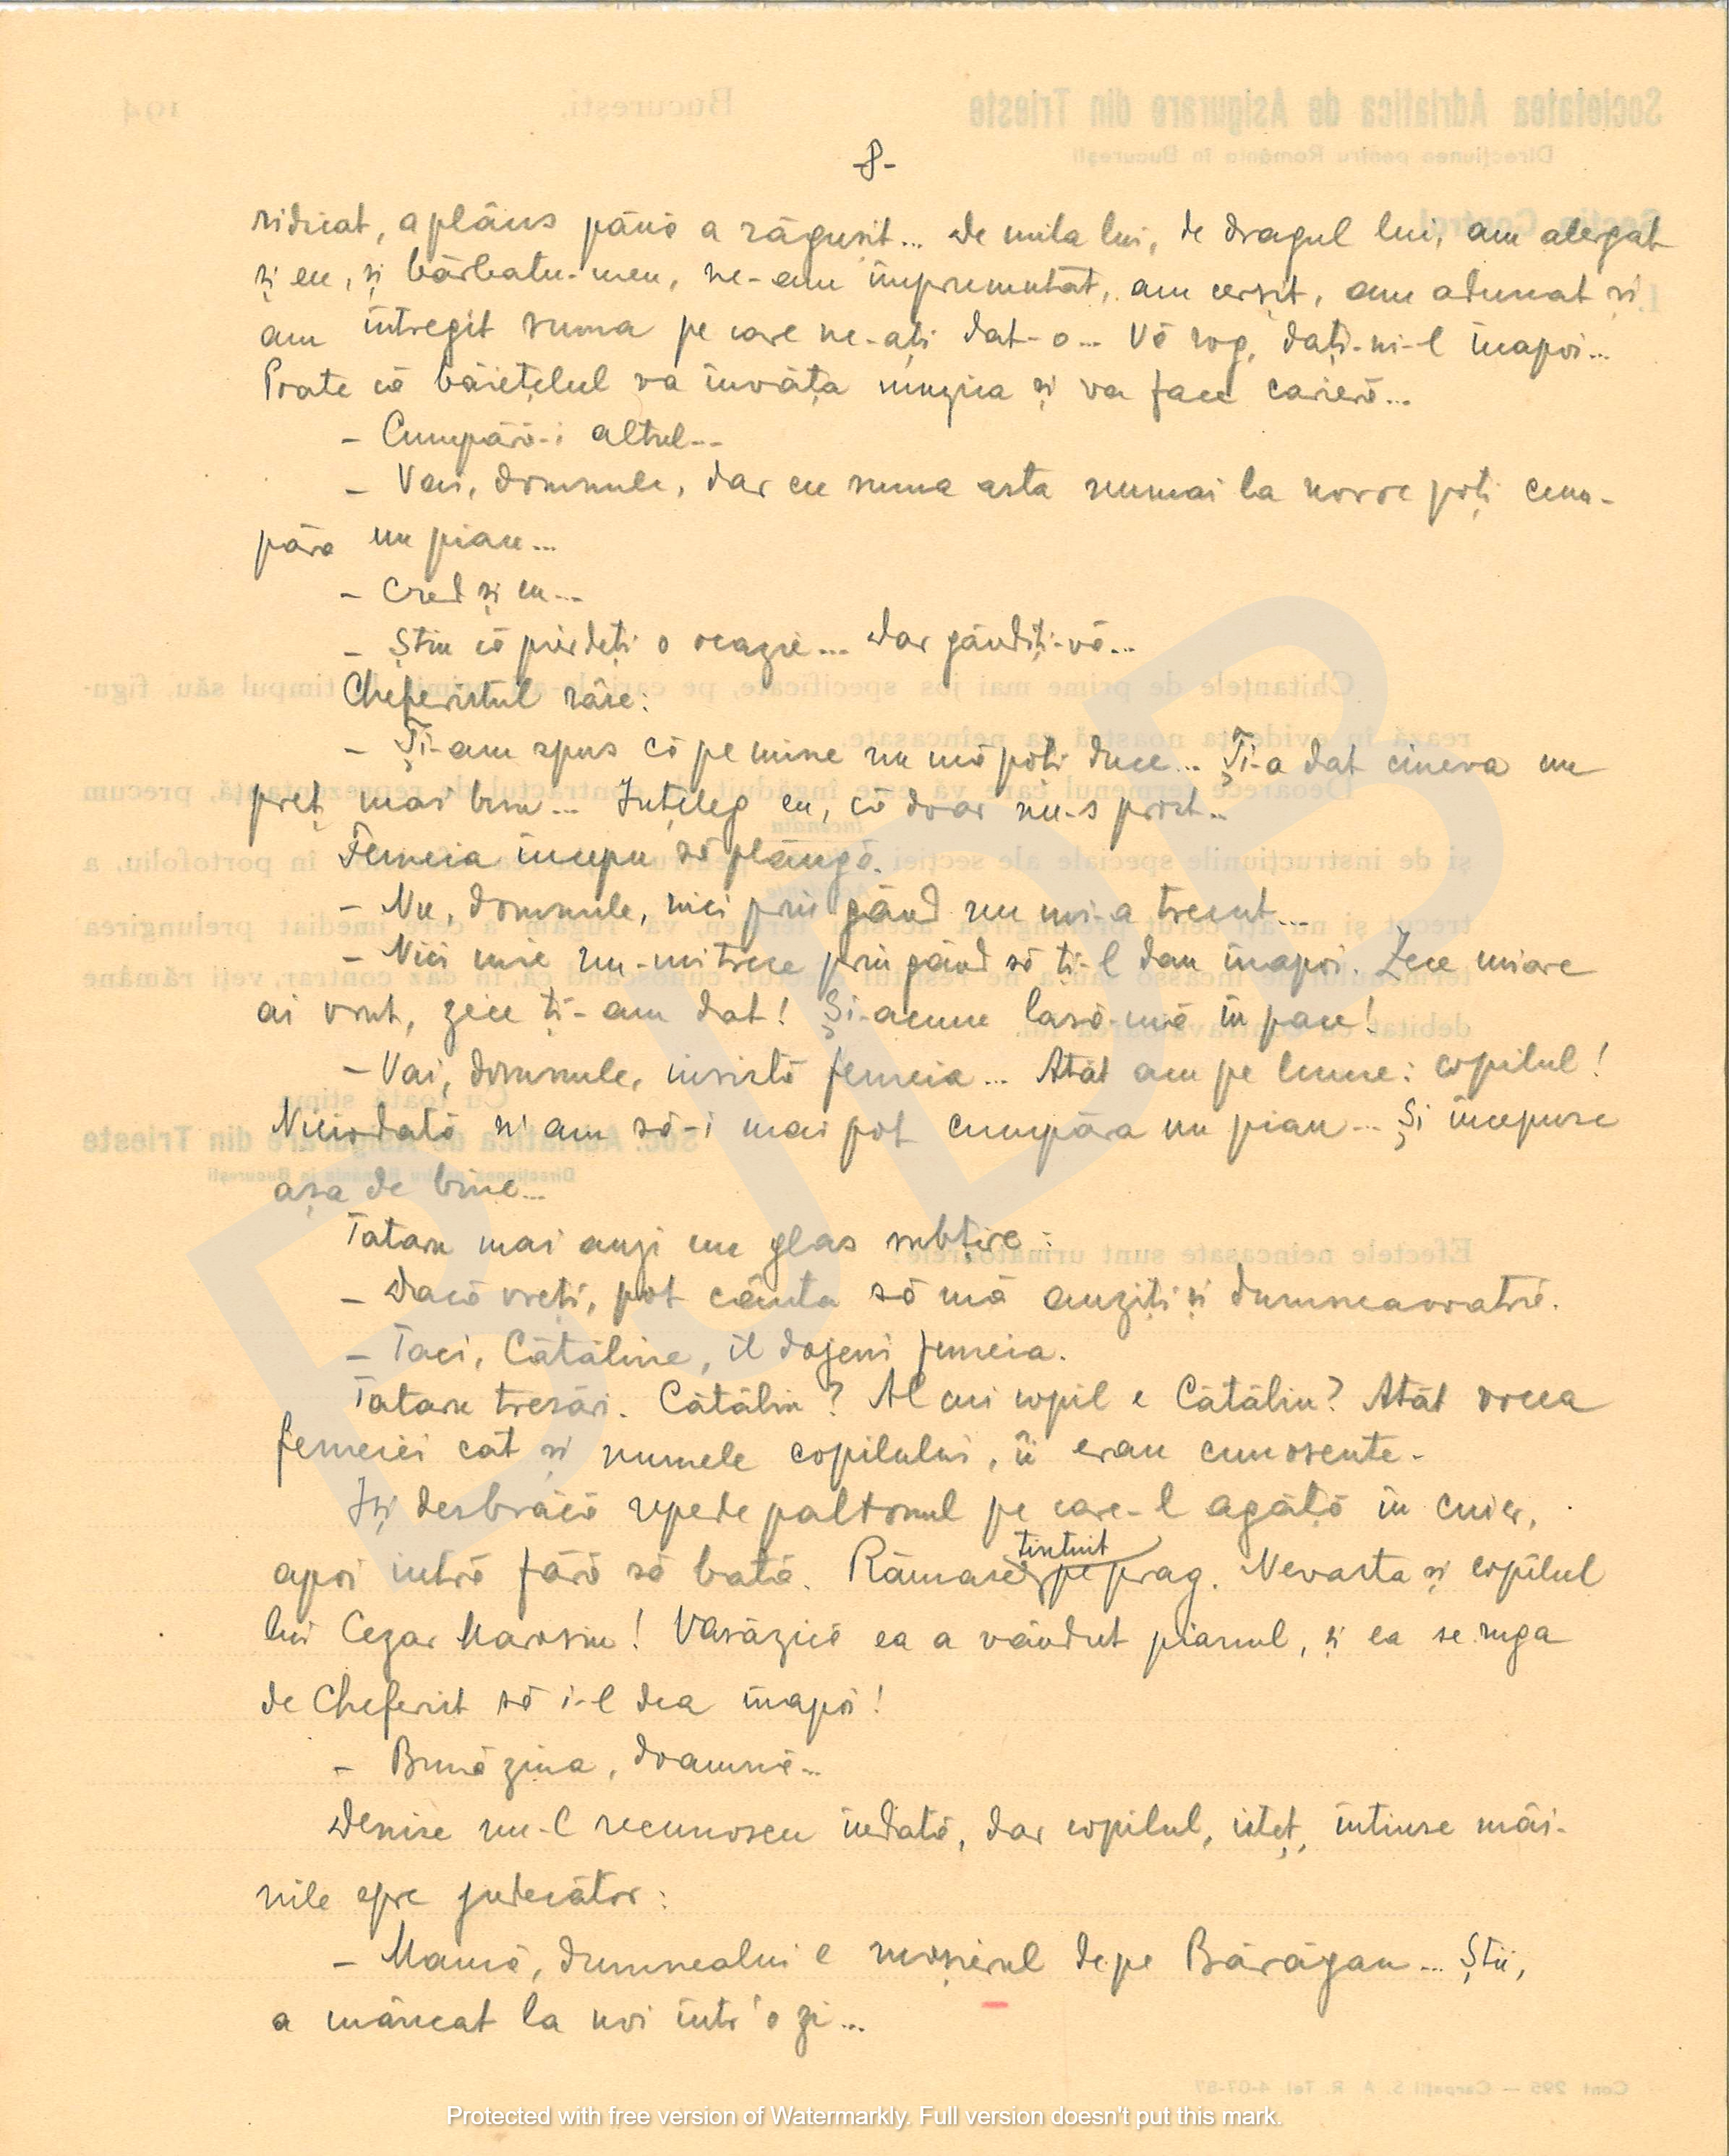 -8-
ridicat, a plâns până a răgușit... De mila lui, de dragul lui, am alergat
și eu, și bărbatu-meu, ne-am împrumutat, am cerșit, am adunat și
am întregit suma pe care ne-ați dat-o... Vă rog, dați-ni-l înapoi...
Poate că băiețelul va învăța muzica și va face carieră...
- Cumpără-i altul...
- Vai, domnule, dar cu suma asta numai la noroc poți cum-
păra un pian...
- Cred și eu...
- Știu că pierdeți o ocazie... Dar gândiți-vă...
Cheferistul râse:
- Ți-am spus că pe mine nu mă poți duce... Ți-a dat cineva un
preț mai bun... Înțeleg eu, că doar nu-s prost...
Femeia începu să plângă.
- Nu, domnule, nici prin gând nu mi-a trecut...
- Nici mie nu-mi trece prin gând să ți-l dau înapoi. Zece miare
ai vrut, zece ți-am dat! Și-acum lasă-mă în pace!
- Vai, domnule, insistă femeia... Atât am pe lume: copilul!
Niciodată n'am să-i mai pot cumpăra un pian... Și începuse
așa de bine...
Tataru mai auzi un glas subțire:
- Dacă vreți, pot cânta să mă auziți și dumneavoatră.
- Taci, Cătăline, îl dojeni femeia.
Tataru tresări. Cătălin? Al cui copil e Cătălin? Atât vocea
femeiei cât și numele copilului, îi erau cunoscute.
Își desbrăcă repede paltonul pe care-l agăță în cuier,
apoi intră fără să bată. Rămase țintuit pe prag. Nevasta și copilul
lui Cezar Marosin! Vasăzică ea a vândut pianul, și ea se ruga
de Cheferist să i-l dea înapoi!
- Bună ziua, doamnă...
Denise nu-l recunoscu îndată, dar copilul, isteț, întinse mâi-
nile spre judecător:
- Mamă, dumnealui e moșierul depe Bărăgan... Știi,
a mâncat la noi într'o zi...
Societatea Adriatica de Asigurare din Trieste
Direcțiunea pentru România în București
București,
194
Protected with free version of Watermarkly. Full version doesn't put this mark.